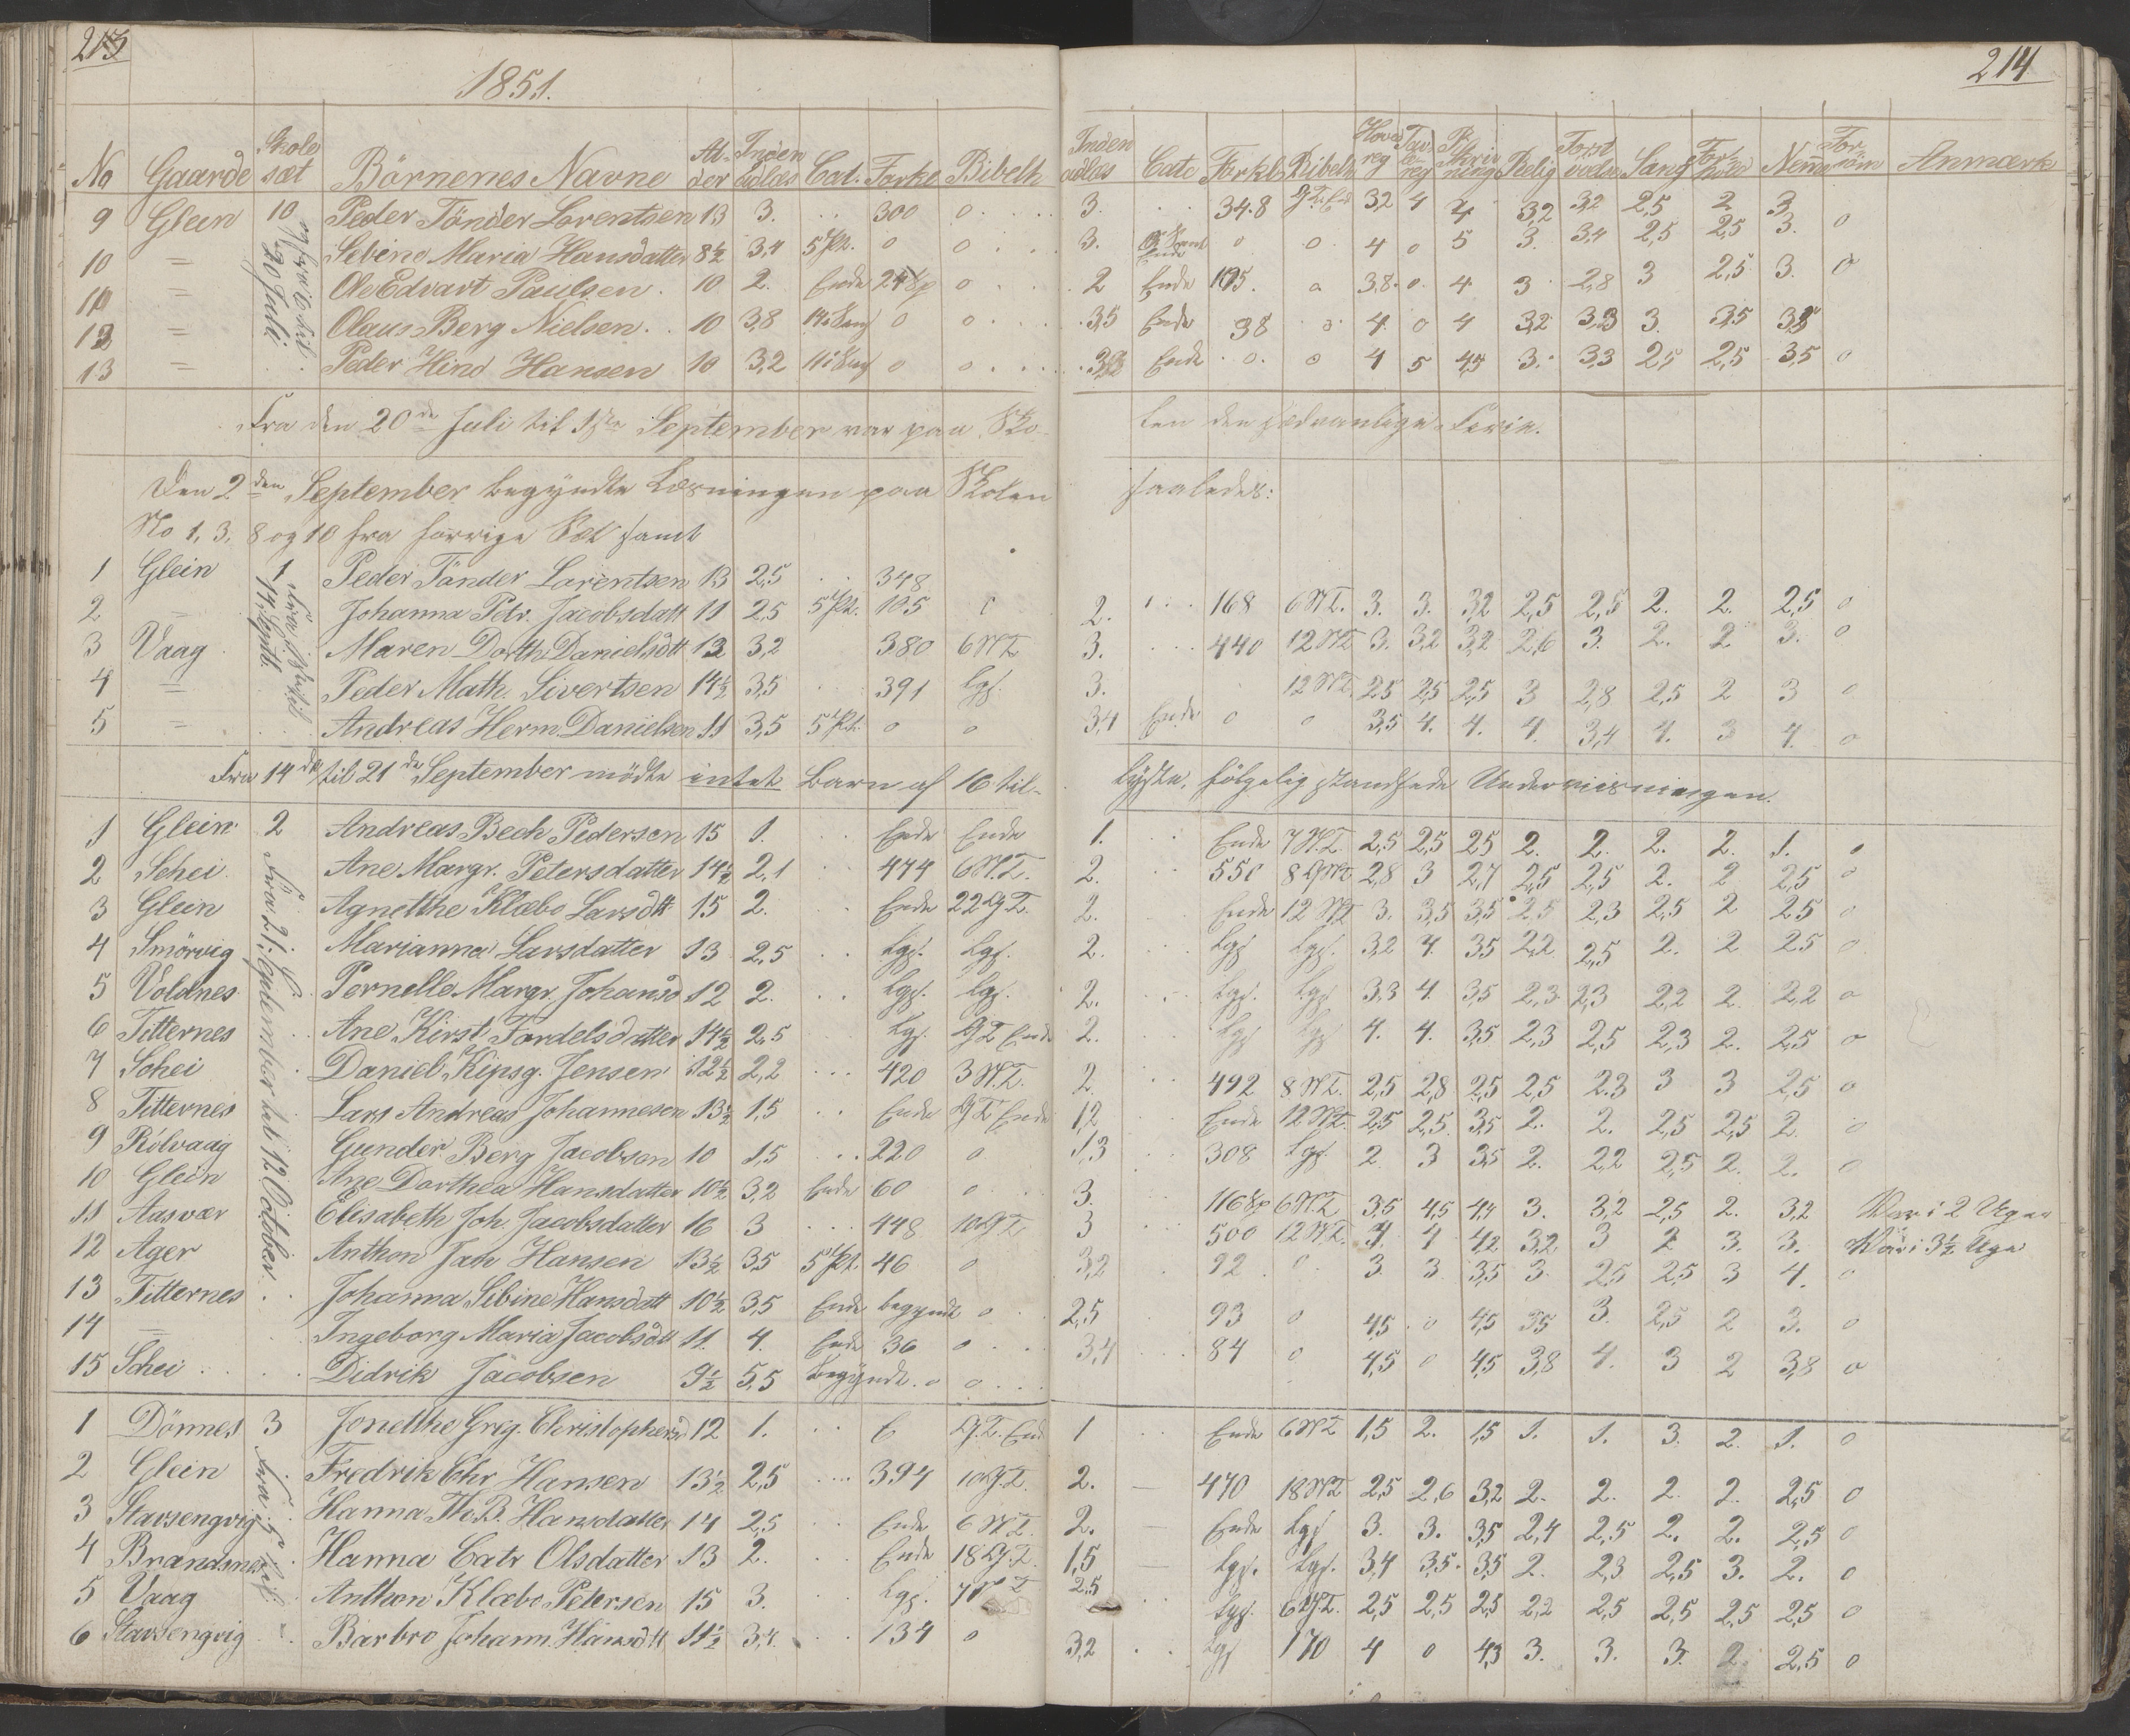 213
1851.
No Gaarde Skole sæt Börnenes Navne Al- der Inden adlæs Cat. Forkl Bibelh
9 Glein 10 Peder Tönder Lorentsen 13 3. . . 300 0
10 = Sebine Maria Hansdatter 8½ 3,4 5 Pt. 0 0
11 = Ole Edvart Paulsen 10 2. Ende 24 Sp 0
12 = Olaus Berg Nielsen 10 3,8 0 0
13 = Peder Hind Hansen 10 3,2 0 0
20 Juli
Fra den 20de Juli til 1ste September var paa Sko-
Den 2den September begyndte Læsningen paa Skolen
No 1, 3, 8 og 10 fra forrige Sæt samt
1 Glein 1 Peder Tönder Lorentsen 13 2,5 . . 348
2 = Johanna Petr. Jacobsdatt 11 2,5 5 Pt. 105
3 Vaag Maren Dorth. Danielsdtt 13 3,2 380 6 NT
4 = Peder Math. Sivertsen 14½ 3,5 391 Lgs.
5 = Andreas Herm. Danielsen 11 3,5 5 Pt. 0 0
14 Septb.
Fra 14de til 21de September mödte intet Barn af 16 til-
1 Glein 2 Andreas Bech Pedersen 15 1. Ende Ende
2 Schei Ane Margr. Petersdatter 14½ 2,1 474 6 N.T.
3 Glein Agnethe Klæbo Larsdtt 15 2. Ende 22 G.T.
4 Smörvig Marianna Larsdatter 13 2,5 Lgs. Lgs.
5 Voldnes Pernelle Margr. Johansd 12 2. Lgs. Lgs.
6 Titternes Ane Kirst. Tordelsdatter 14½ 2,5 Lgs. GT Ende
7 Schei Daniel Kipsg. Jensen 12½ 2,2 420 3 N.T.
8 Titternes Lars Andreas Johannesen 13½ 1,5 Ende GT Ende
9 Rölvaag Gunder Berg Jacobsen 10 1,5 220 0
10 Glein Ane Dorthea Hansdatter 10½ 3,2 Ende 60 0
11 Aasvær Elisabeth Joh. Jacobsdatter 16 3 448 10 GT
12 Ager Anthon Jah Hansen 13½ 3,5 5 Pt. 46 0
13 Titternes Johanna Sibine Hansdatt 10½ 3,5 Ende begyndt 0
14 = Ingeborg Maria Jacobsdtt 11. 4. Ende 36 0
15 Schei Didrik Jacobsen 9½ 5,5 Begyndt. 0 0
Fra 21 September til 12 October
1 Dönnes 3 Jonethe Greg. Christophersd 12 1. G.T. End
2 Glein Fredrik Chr Hansen 13½ 2,5 394 10 G.T.
3 Stavsengvig Hanna Th. B. Hansdatter 14 2,5 Ende 6 N.T.
4 Brandsnes Hanna Catr Olsdatter 13 2. Ende 18 G.T.
5 Vaag Anthon Klæbo Petersen 15 3. Lgs.
6 Stavsengvig Barbro Johann. Hansdtt 11½ 3,4 134 0
214
Inden adlæs Catc Forkl Bibelh Hoved reg Tav le reg Skriv ning Relig Forst Sang For hold Nemme For söm Anmærk
3. . . 34.8 G.T. End 3,2 4 4 3,2 3,2 2,5 2 3
3. 0 0 4 0 5 3. 3,4 2,5 2,5 3. 0
2 Ende 105. 0 3,8. 0. 4 3 2,8 3 2,5 3. 0
3,5 Ende 38 0 4. 0 4 3,2 3,3 3. 3,5
Ende 0. 0 4 5 4,5 3. 3,3 2,5 2,5 3,5 0
len den sædvanlige Ferie.
saaledes:
2. 168 6 NT. 3. 3. 3,2 2,5 2,5 2. 2. 2,5 0
3. 440 12 NT 3. 3,2 3,2 2,6 3. 2. 2 3. 0
3. 12 NT. 2,5 2,5 2,5 3 2,8 2,5 2 3 0
3,4 Ende 0 0 3,5 4. 4. 4. 3,4 4. 3 4. 0
lyste, fölgelig standsede Underviisningen.
1. Ende 7 N.T. 2,5 2,5 2,5 2. 2. 2. 2. 1. 0
2. 550 2,8 3 2,7 2,5 2,5 2. 2 2,5 0
2. Ende 12 NT 3. 3,5 3,5 2,5 2,3 2,5 2 2,5 0
2. Lgs Lgs. 3,2 4. 3,5 2,2 2,5 2. 2 2,5 0
2. Lgs. Lgs 3,3 4. 3,5 2,3 2,3 2,2 2. 2,2 0
2. Lgs Lgs 4. 4. 3,5 2,3 2,5 2,3 2. 2,5 0
2. 492 8 N.T. 2,5 2,8 2,5 2,5 2,3 3 3 2,5 0
1,2 Ende 12 NT. 2,5 2,5 3,5 2. 2. 2,5 2,5 2 0
1,3 308 Lgs. 2 3 3,5 2. 2,2 2,5 2. 2. 0
3. 116 Sp 6 N.T. 3,5 4,5 4,4 3. 3,2 2,5 2. 3,2 Var i 2 Uger
3 500 12 N.T. 4. 4 4,2 3,2 3 2 3. 3. Var i 3½ Uge
3,2 92 0 3. 3 3,5 3. 2,5 2,5 3 4. 0
2,5 93 0 4,5 0 4,5 3,5 3. 2,5 2 3. 0
3,4 84 0 4,5 0 4,5 3,8 4. 3 2 3,8 0
1 Ende 6 NT 1,5 2. 1,5 1. 1. 3. 2. 1. 0
2. 470 18 NT 2,5 2,6 3,2 2. 2. 2. 2. 2,5 0
2. Ende Lgs 3. 3. 3,5 2,4 2,5 2. 2. 2,5 0
1,5 Lgs. Lgs. 3,4 3,5. 3,5 2. 2,3 2,5 3. 2. 0
2,5 Lgs. 6 G.T. 2,5 2,5 2,5 2,2 2,5 2,5 2,5 2,5 0
3,2 Lgs 170 4 0 4,3 3. 3. 3. 2. 2,5 0